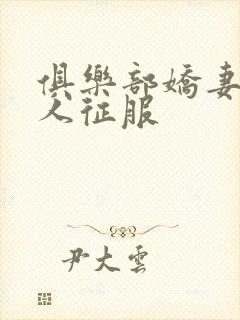 俱樂部嬌妻
人征服
尹大雲